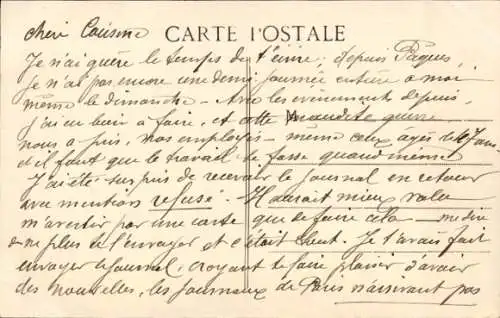 chère Cousine CARTE POSTALE
Je n'ai guère le temps de t'écrire, depuis Pâques,
je n'ai pas encore une demi journée entière à moi
même le dimanche - les événements depuis,
j'ai eu bien à faire, et cette Maudite guerre
nous a pris, nos employés - même ceux âgés
et il faut que le travail se fasse quand même
J'ai été surpris de recevoir le journal en retour
avec mention refusé. Il aurait mieux valu
m'avertir par une carte que de faire cela - me dire
de ne plus te l'envoyer et c'était tout. Je t'avais fait
envoyer le journal, croyant te faire plaisir d'avoir
des nouvelles, les journaux de Paris n'arrivant pas